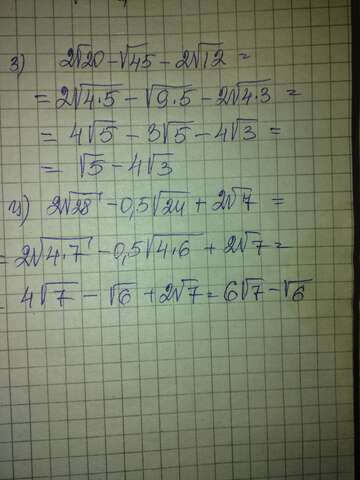 з) 2√20 - √45 - 2√12 =
= 2√4·5 - √9·5 - 2√4·3 =
= 4√5 - 3√5 - 4√3 =
= √5 - 4√3
и) 2√28 - 0,5√24 + 2√7 =
= 2√4·7 - 0,5√4·6 + 2√7 =
= 4√7 - √6 + 2√7 = 6√7 - √6